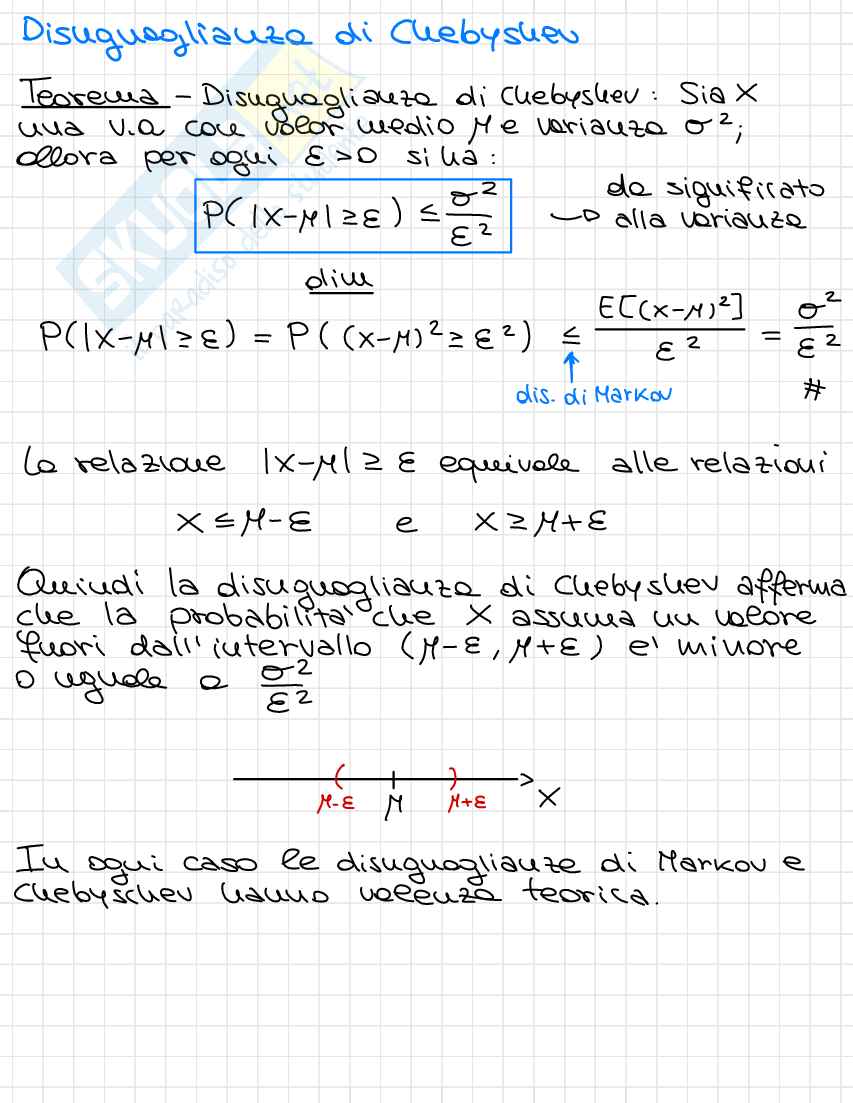 Disuguaglianza di Chebyshev
Teorema - Disuguaglianza di Chebyshev: Sia X
una v.a con valor medio μ e varianza σ²;
allora per ogni ε>0 si ha:
P(|X-μ|≥ε) ≤ σ²/ε²
da significato
→ alla varianza
dim
P(|X-μ|≥ε) = P((X-μ)²≥ε²) ≤ E[(X-μ)²]/ε² = σ²/ε²
dis. di Markov
#
la relazione |X-μ| ≥ ε equivale alle relazioni
X ≤ μ-ε e X ≥ μ+ε
Quindi la disuguaglianza di Chebyshev afferma
che la probabilita' che X assuma un valore
fuori dall'intervallo (μ-ε, μ+ε) e' minore
o uguale a σ²/ε²
μ-ε μ μ+ε X
In ogni caso le disuguaglianze di Markov e
Chebyschev hanno valenza teorica.